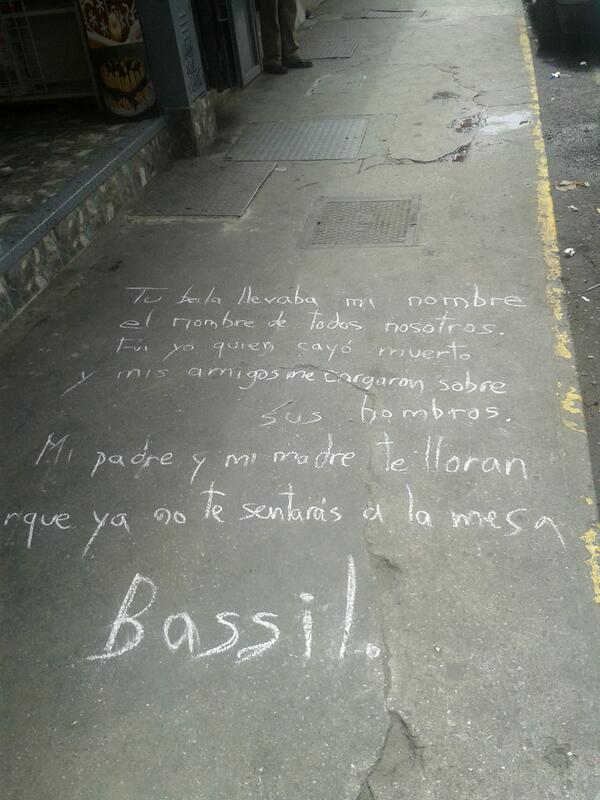 Tu bala llevaba mi nombre
el nombre de todos nosotros.
Fui yo quien cayó muerto
y mis amigos me cargaron sobre
sus hombros.
Mi padre y mi madre te lloran
rque ya no te sentarás a la mesa
Bassil.